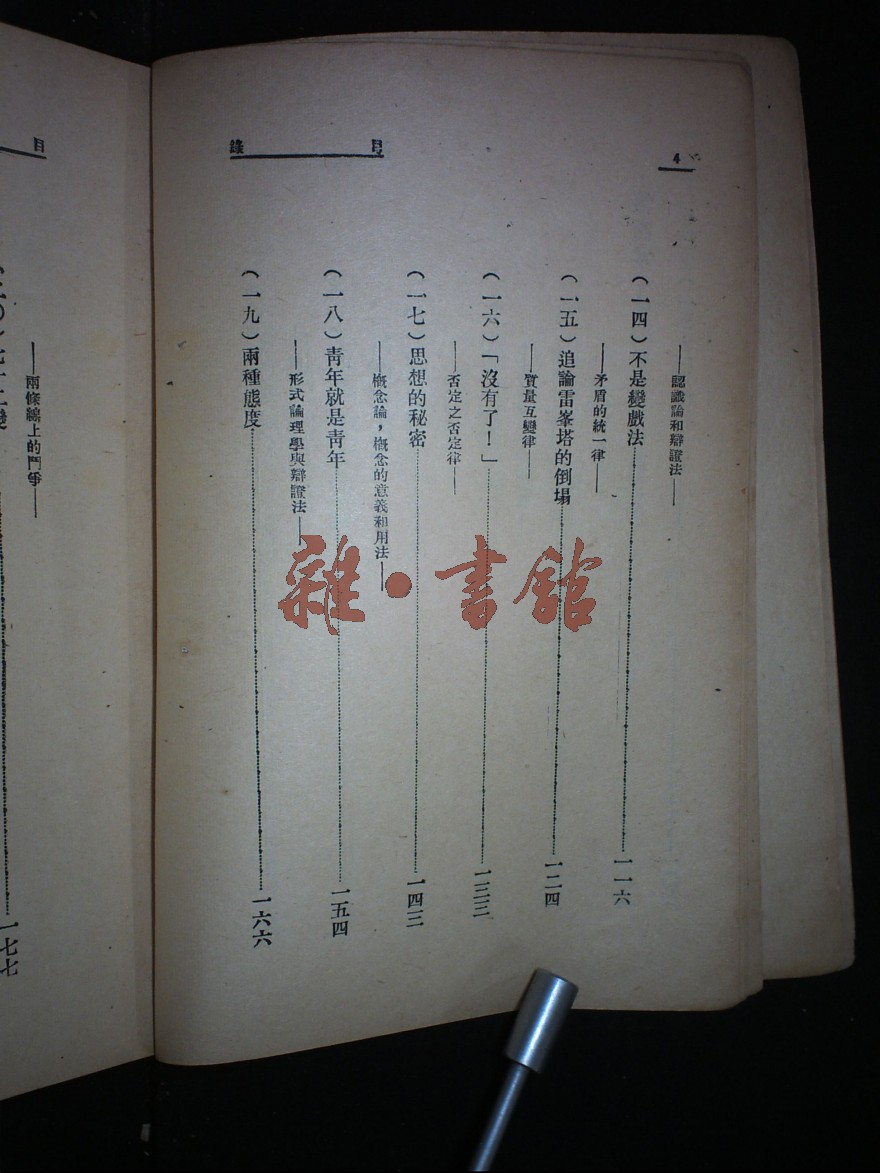 4
目錄
——認識論和辯證法——
（一四）不是變戲法……一一六
——矛盾的統一律——
（一五）追論雷峯塔的倒塌……一二四
——質量互變律——
（一六）「沒有了！」……一三三
——否定之否定律——
（一七）思想的秘密……一四三
——概念論，概念的意義和用法——
（一八）青年就是青年……一五四
——形式論理學與辯證法——
（一九）兩種態度……一六六
目
——兩條線上的鬥爭——
（二〇）七十二變……一七七
雜·書館